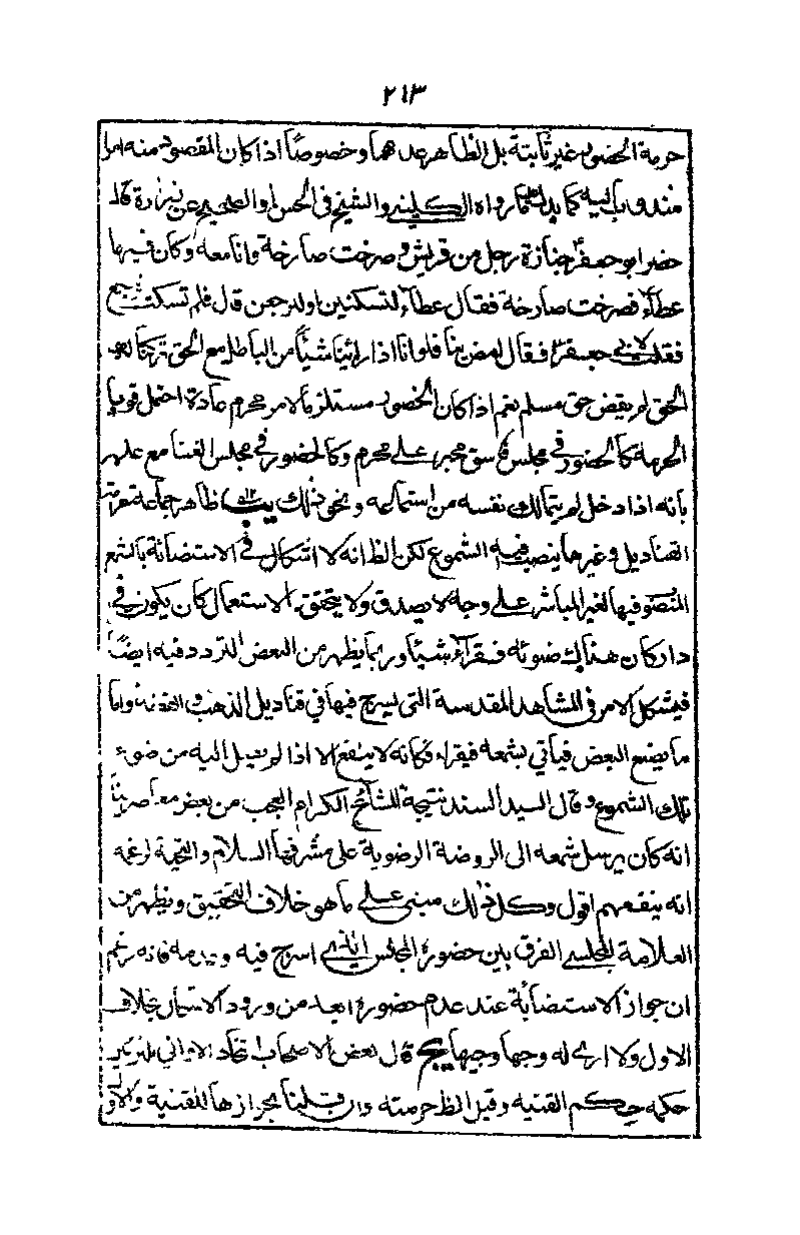 ٢١٣
حرمة الحضور غير ثابتة بل الظاهر عدمها وخصوصاً اذا كان المقصود منه امرا
مندوبا اليه كما يدل ما رواه الكليني والشيخ في الحسن او الصحيح عن زرارة قال
حضر ابو جعفر جنازة رجل من قريش وصرخت صارخة وانا معه وكان فيها
عطاء فصرخت صارخة فقال عطاء لتسكتين او لنرجعن قال فلم تسكت فرجع
فقلت لابي جعفر فقال امض بنا فلو انا اذا راينا شيئاً من الباطل مع الحق تركنا له
الحق لم نقض حق مسلم نعم اذا كان الحضور مستلزما لامر محرم عادة احتمل قويا
الحرمة كالحضور في مجلس فاسق مجبر على محرم وكالحضور في مجلس الغنا مع علمه
بانه اذا دخل لم يتمالك نفسه من استماعه ونحو ذلك يب ظاهر جماعة
القناديل وغيرها ينصب فيه الشموع لكن الظ انه لا اشكال في الاستضائة بالشمع
المنصو فيها لغير المباشر على وجه لا يصدق ولا يتحقق الاستعمال كان يكون في
دار كان هناك ضوئه فقراء شيئا وربما يظهر من البعض التردد فيه ايضاً
فيشكل الامر في المشاهد المقدسة التي يسرج فيها في قناديل الذهب و الفضة واما
ما يصنع البعض فياتي بشمعه فيقراء فكانه لا ينفع الا اذا لم يصل اليه من ضوء
تلك الشموع وقال السيد السند نتيجة المشائخ الكرام العجب من بعض معاصرينا
انه كان يرسل شمعه الى الروضة الرضوية على مشرفها السلام والتحية لزعمه
انه ينفعهم اقول وكل ذلك مبني على ما هو خلاف التحقيق ويظهر من
العلامة المجلسي الفرق بين حضوره المجلس الذي اسرج فيه وعدمه فانه زعم
ان جواز الاستضائة عند عدم حضوره ابعد من ورود الاشكال بخلاف
الاول ولا ارى له وجها وجيها يج قال بعض الاصحاب اتخاذ الاواني للتزيين
حكمه حكم القنية وقيل الظ حرمته وان قلنا بجوازها للقنية والاو